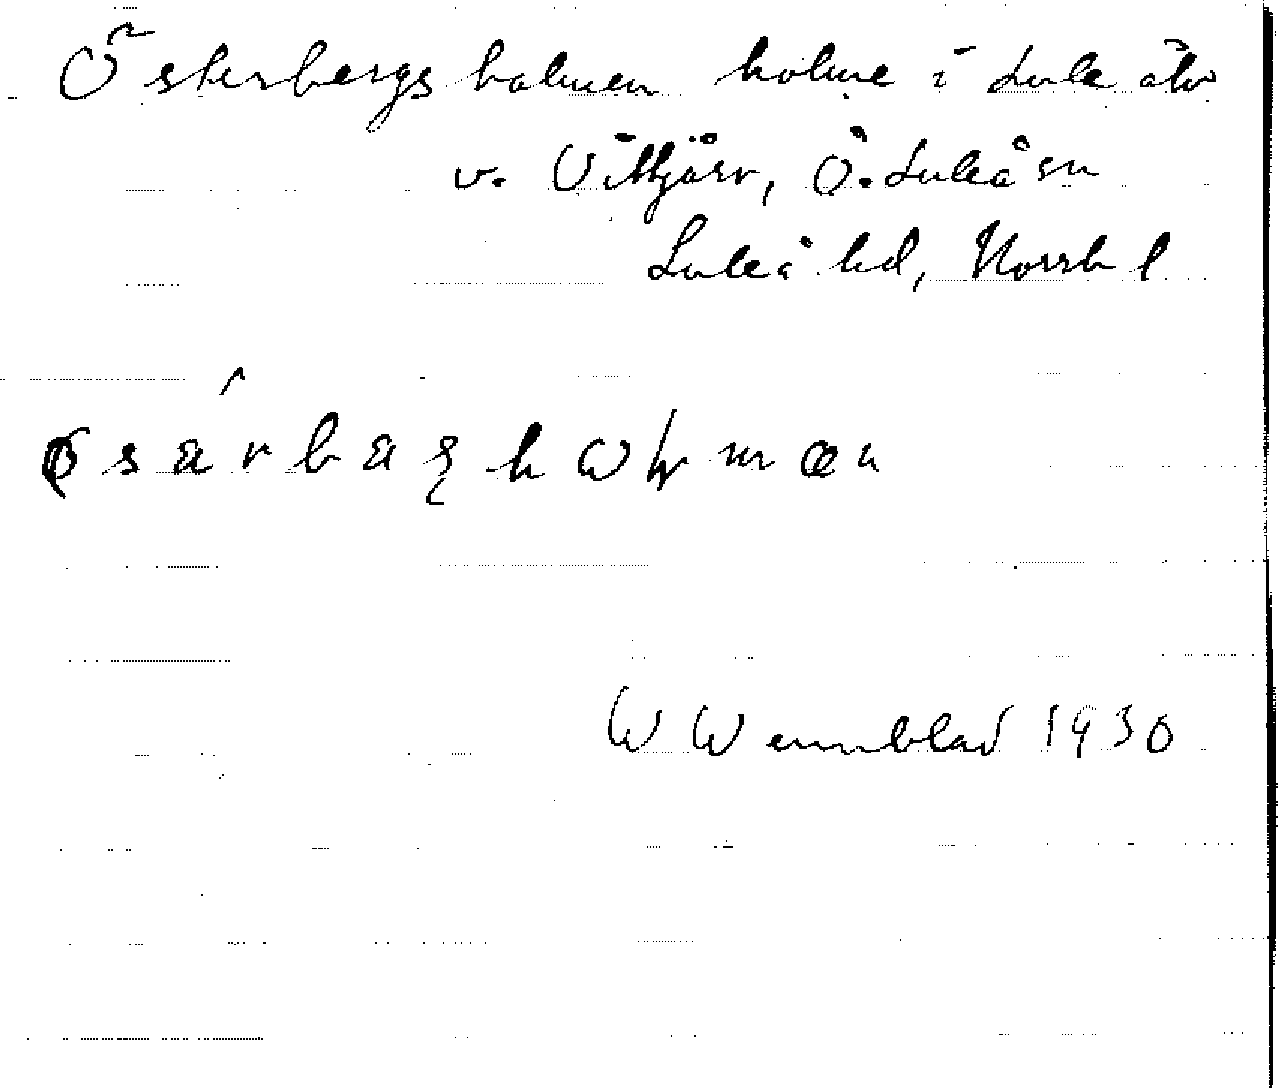 Österbergsholmen holme i Lule älv
v. Vittjärv, Ö. Luleå sn
Luleå hd, Norrb l
W Wennblad 1930